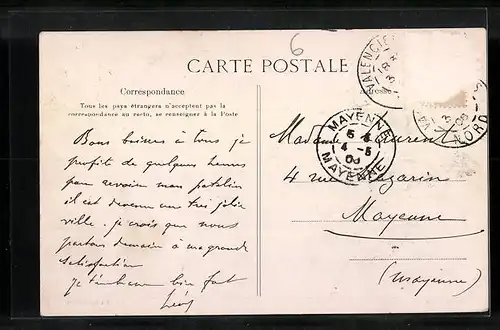 6
CARTE POSTALE
Correspondance
Tous les pays étrangers n'acceptent pas la
correspondance au recto, se renseigner à la Poste
Adresse
VALENCIE
NORD
MAYENNE
5
4 -5
MAYENNE
Bons baisers à tous je
profite de quelques heures
pour revoir mon patelin
il est devenu une très jolie
ville. je crois que nous
partons demain à ma grande
satisfaction
je t'embrasse bien fort
Madame
4 rue Mazarin
Mayenne
(Mayenne)